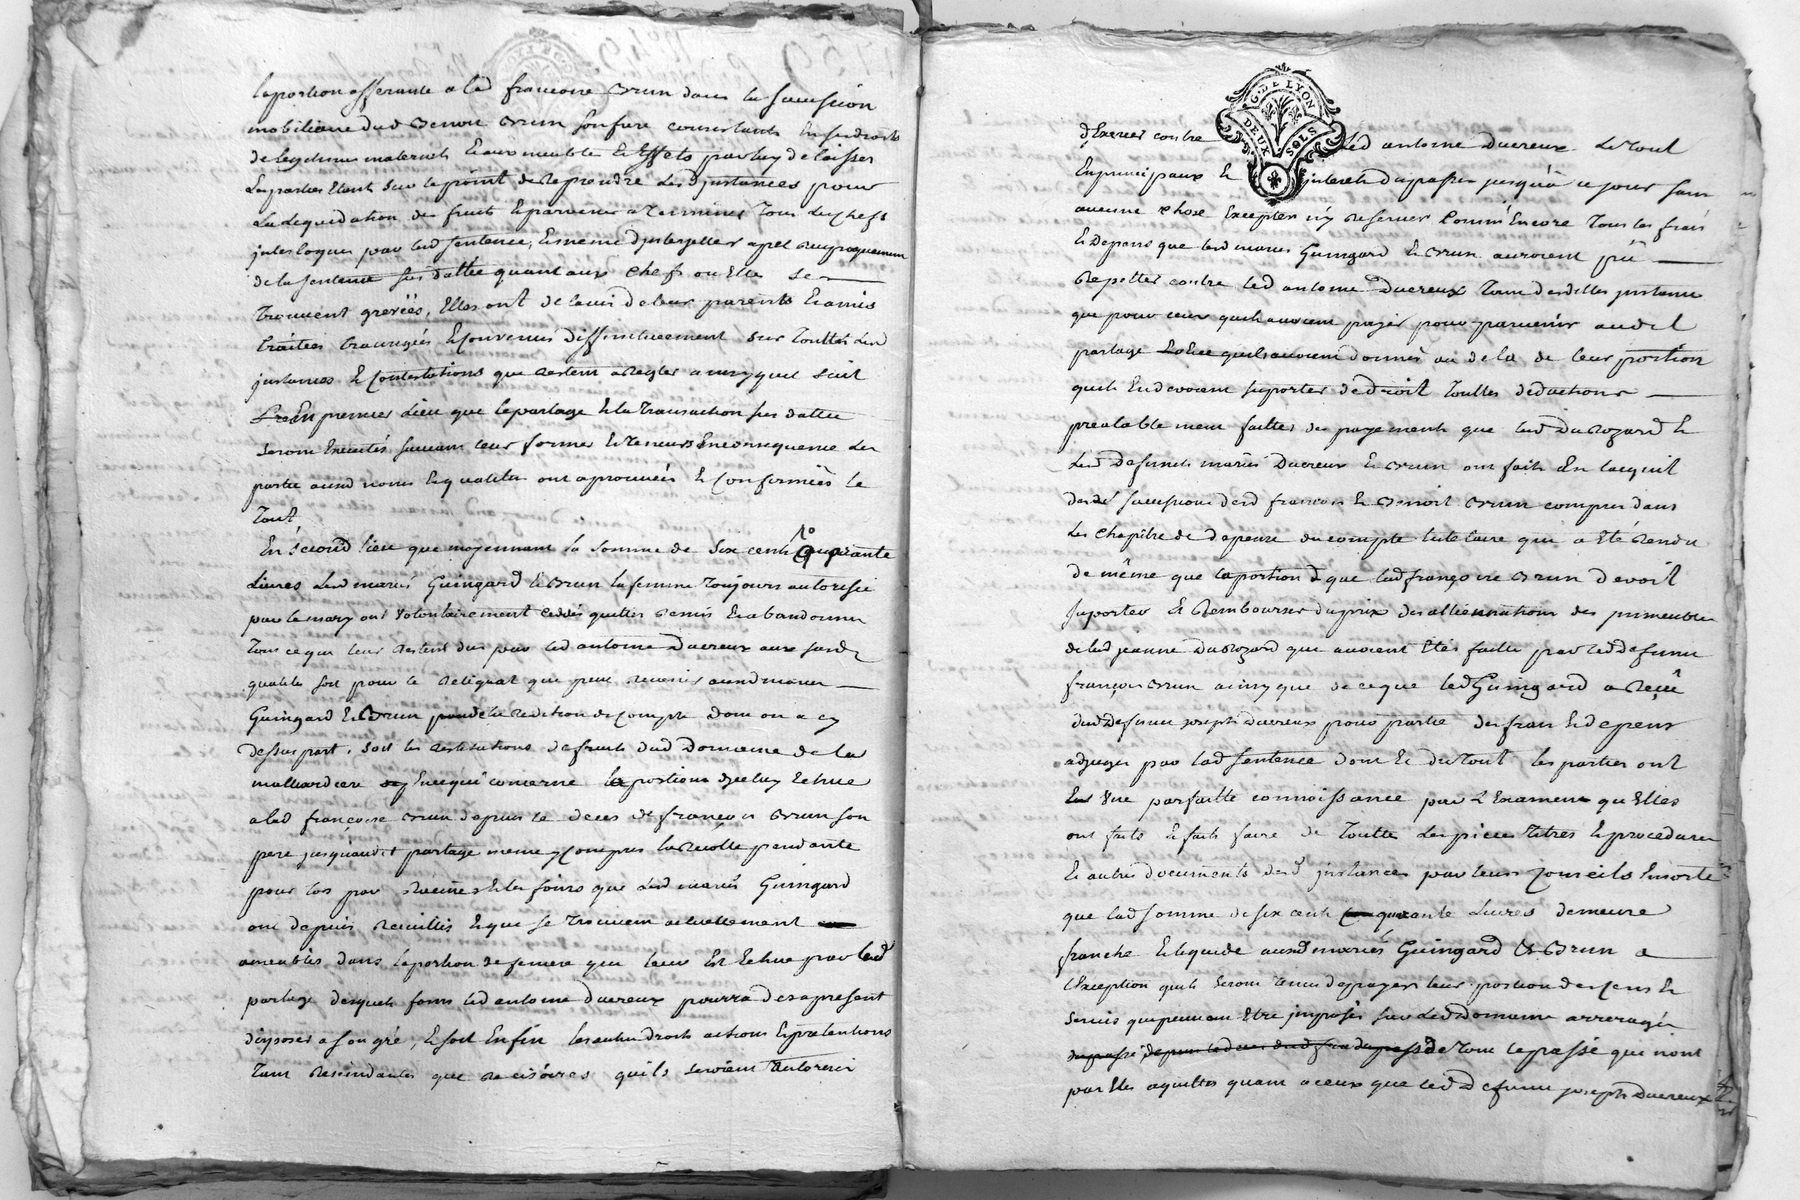 laportion afferante a lad francoise Brun dans la succession
mobiliaire dud Benoit Brun son frere consistants en ses droits
de legitime maternels et aux meubles et Effets par luy delaisses
les parties étant sur le point de Reprendre lesd jnstances pour
la liquidation des fruits et parvenir a terminer tous les chefs
jnterloqués par lad sentence, et meme d'jnterjetter apel
de la sentence sus dattée quant aux chefs ou Elles se
trouvent grevées, Elles ont de lavis de leurs parents et amis
traitées transigés et convenues diffinitivement sur touttes lesd
jnstances et contestations que restent a regler ainsy quil suit
En premier lieu que le partage et la transaction sus dattée
seront Executés suivant leur forme et teneurs En consequence les
parties ausd noms et qualités ont aprouvées et confirmées le
tout
En second lieu que moyennant la somme de six cents quarante
Livres lesd mariés Guingard et Brun la femme toujours autorisée
par le mary ont volontairement cedés quittés remis et abandonnés
tous ce que leur restent dus par led antoine Ducreux aux susd
qualités soit pour le reliquat que peut revenir ausd mariés
Guingard et Brun de la reddition de compte dont on a cy
dessus parlé, soit les restitutions de fruits dud Domaine de la
en ce qui concerne la portion dyceluy echue
a lad françoise Brun depuis le deces de françois Brun son
pere jusquaud partage meme y compris la recolte pendante
pour lors par racines et les foins que lesd mariés Guingard
ont depuis recuillis et que se trouvent actuellement
ameublés dans la portion de que leur Est Echue par led
partage desquels foins led antoine Ducreux pourra des apresent
disposer a son gré, et soit Enfin les autres droits actions et pretentions
tant rescindantes que recisoires quils seroient En droit
d'Exercer contre led antoine Ducreux Le tout
En principaux et jnterets du passé jusqu'a ce jour sans
aucune chose Excepter n'y reserver Comme Encore tous les frais
et Depens que lesd mariés Guingard et Brun auroient pû
repetter contre led antoine Ducreux tant desdittes jnstances
que pour ceux quils avoient payés pour parvenir audit
partage quils avoient donnés au dela de leur portion
quils En devoient suporter de droit touttes deductions
prealablement faittes des payements que lad Durozard et
lesd defunts mariés Ducreux et Brun ont faits En lacquit
desd successions desd françois et Benoit Brun compris dans
les chapitre de depense du compte tutelaire qui a été rendu
de même que la portion que lad françoise Brun devoit
suporter et Rembourser du prix des allienations des jmmeubles
de lad jeanne Durozard que avoient étés faittes par led defunt
françois Brun ainsy que de ce que led Guingard a reçû
dud defunt joseph Ducreux pour partie des frais et depens
adjugés par lad sentence dont et du tout les parties ont
Une parfaitte connoissance par l'Examen qu'Elles
ont faits et faits faire de touttes les pieces titres et procedures
et autres documents desd jnstances par leurs Conseils Ensorte
que lad somme de six cents quarante Livres demeure
franche et liquide ausd mariés Guingard et Brun a
l'Exception quils seront tenus de payer leur portion des cens et
servis que peuvent Etre jmposés sur led Domaine arrerages
de tout le passé que n'ont
par Eux aquittés quant a ceux que led defunt joseph Ducreux
G. DE LYON
DEUX SOLS